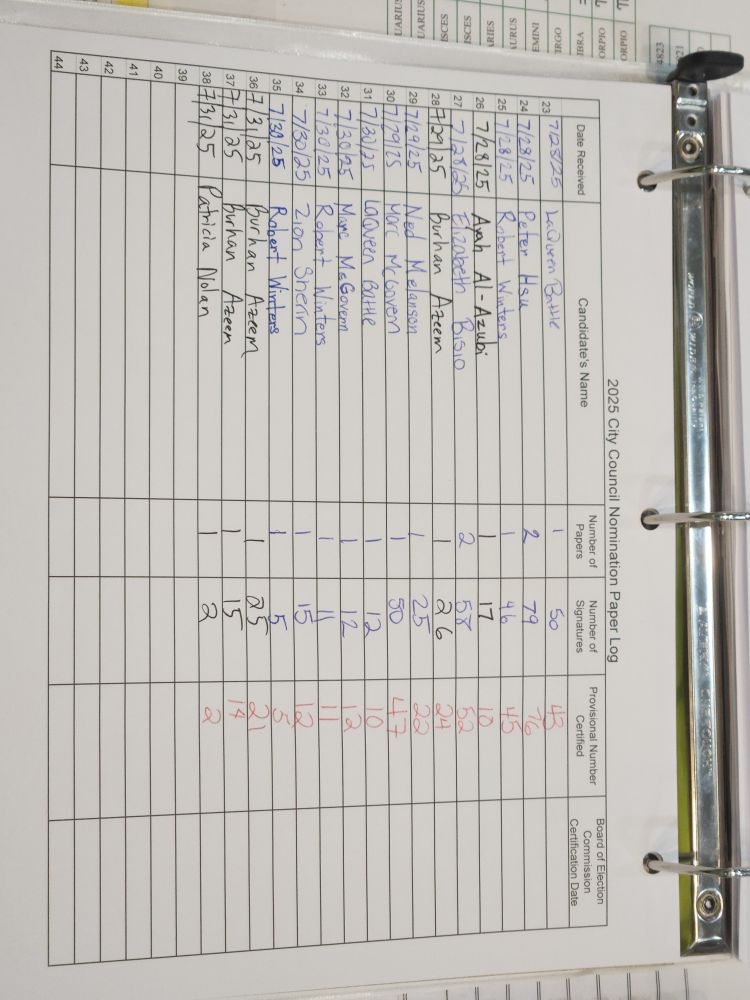 2025 City Council Nomination Paper Log
Date Received Candidate's Name Number of Papers Number of Signatures Provisional Number Certified Board of Election Commission Certification Date
23 7/28/25 LaQueen Battle 1 50 43
24 7/28/25 Peter Hsu 2 79 76
25 7/28/25 Robert Winters 1 46 45
26 7/28/25 Ayah Al-Azubi 1 17 10
27 7/28/25 Elizabeth Bisio 2 58 52
28 7/29/25 Burhan Azeem 1 26 24
29 7/29/25 Ned Melanson 1 25 22
30 7/29/25 Marc McGovern 1 50 47
31 7/30/25 LaQueen Battle 1 12 10
32 7/30/25 Marc McGovern 1 12 12
33 7/30/25 Robert Winters 1 11 11
34 7/30/25 Zion Sherin 1 15 12
35 7/30/25 Robert Winters 1 5 5
36 7/31/25 Burhan Azeem 1 25 21
37 7/31/25 Burhan Azeem 1 15 14
38 7/31/25 Patricia Nolan 1 2 2
39
40
41
42
43
44